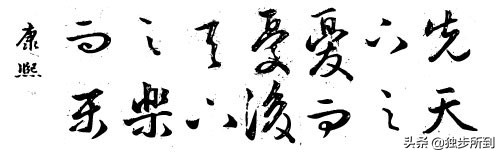 先天
下之
憂而
憂後
天下
之樂
而乐
康熙
头条 @独步所到